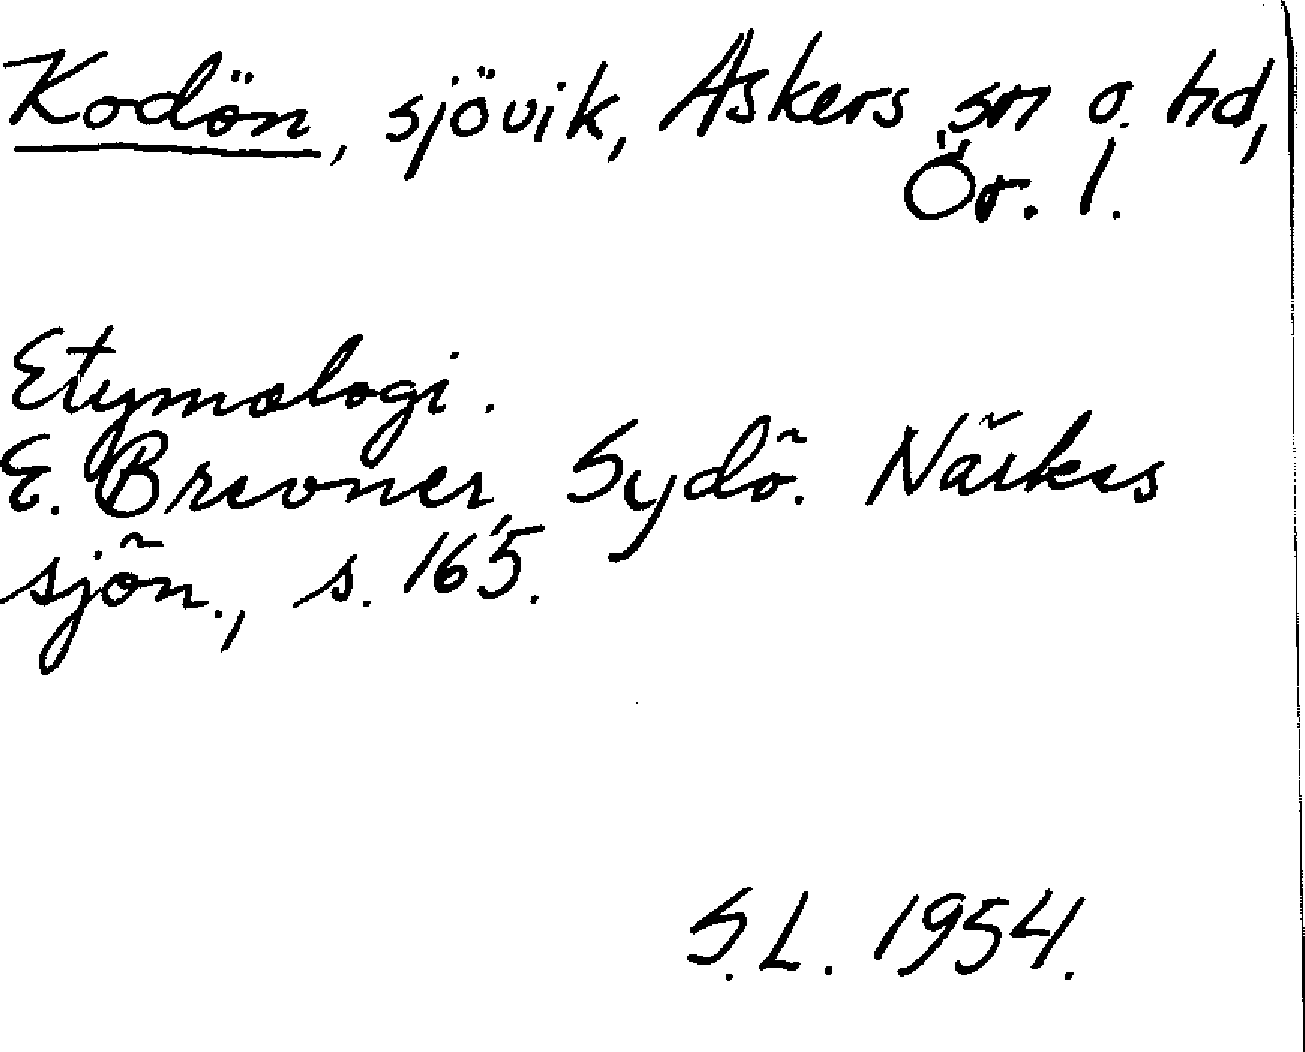 Kodön, sjövik, Askers sn o. hd,
Ör. l.
Etymologi.
E. Brevner, Sydö. Närkes
sjön., s. 165.
S.L. 1954.